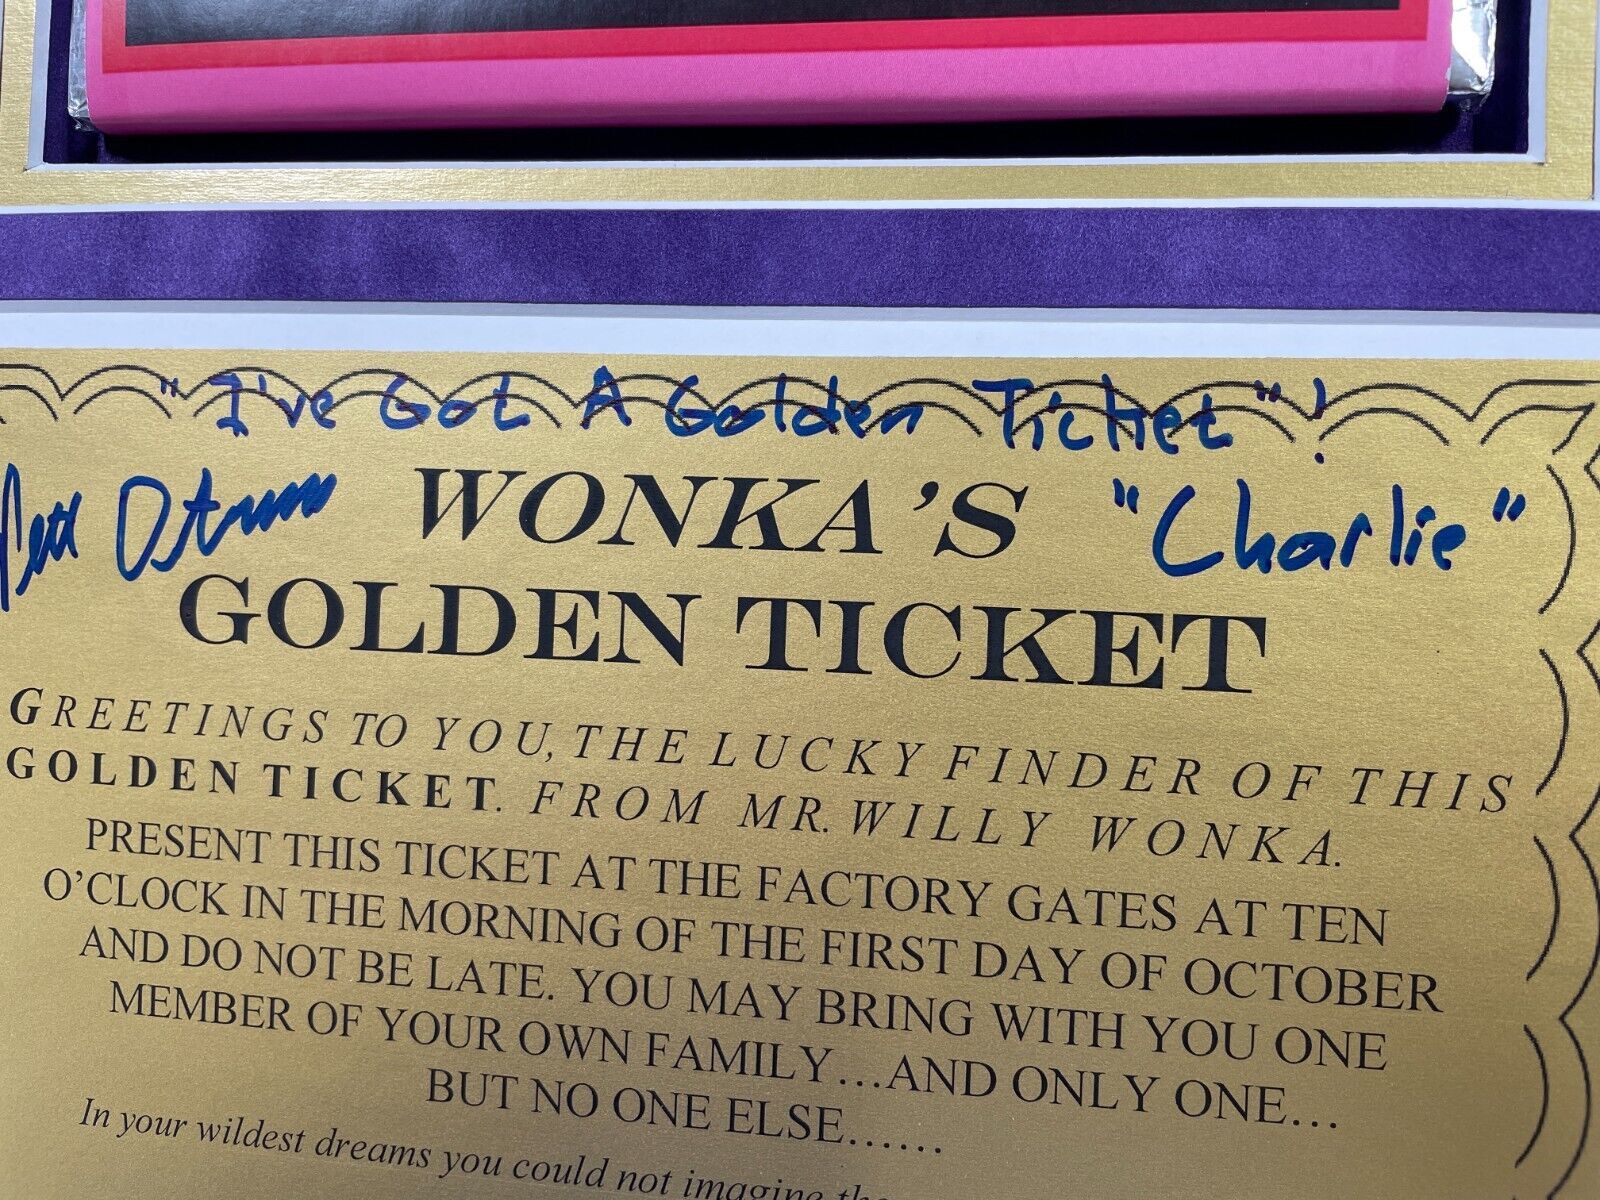 "I've Got A Golden Ticket"!
Peter Ostrum WONKA'S "Charlie"
GOLDEN TICKET
GREETINGS TO YOU, THE LUCKY FINDER OF THIS
GOLDEN TICKET. FROM MR. WILLY WONKA.
PRESENT THIS TICKET AT THE FACTORY GATES AT TEN
O'CLOCK IN THE MORNING OF THE FIRST DAY OF OCTOBER
AND DO NOT BE LATE. YOU MAY BRING WITH YOU ONE
MEMBER OF YOUR OWN FAMILY...AND ONLY ONE...
BUT NO ONE ELSE......
In your wildest dreams you could not imagine the